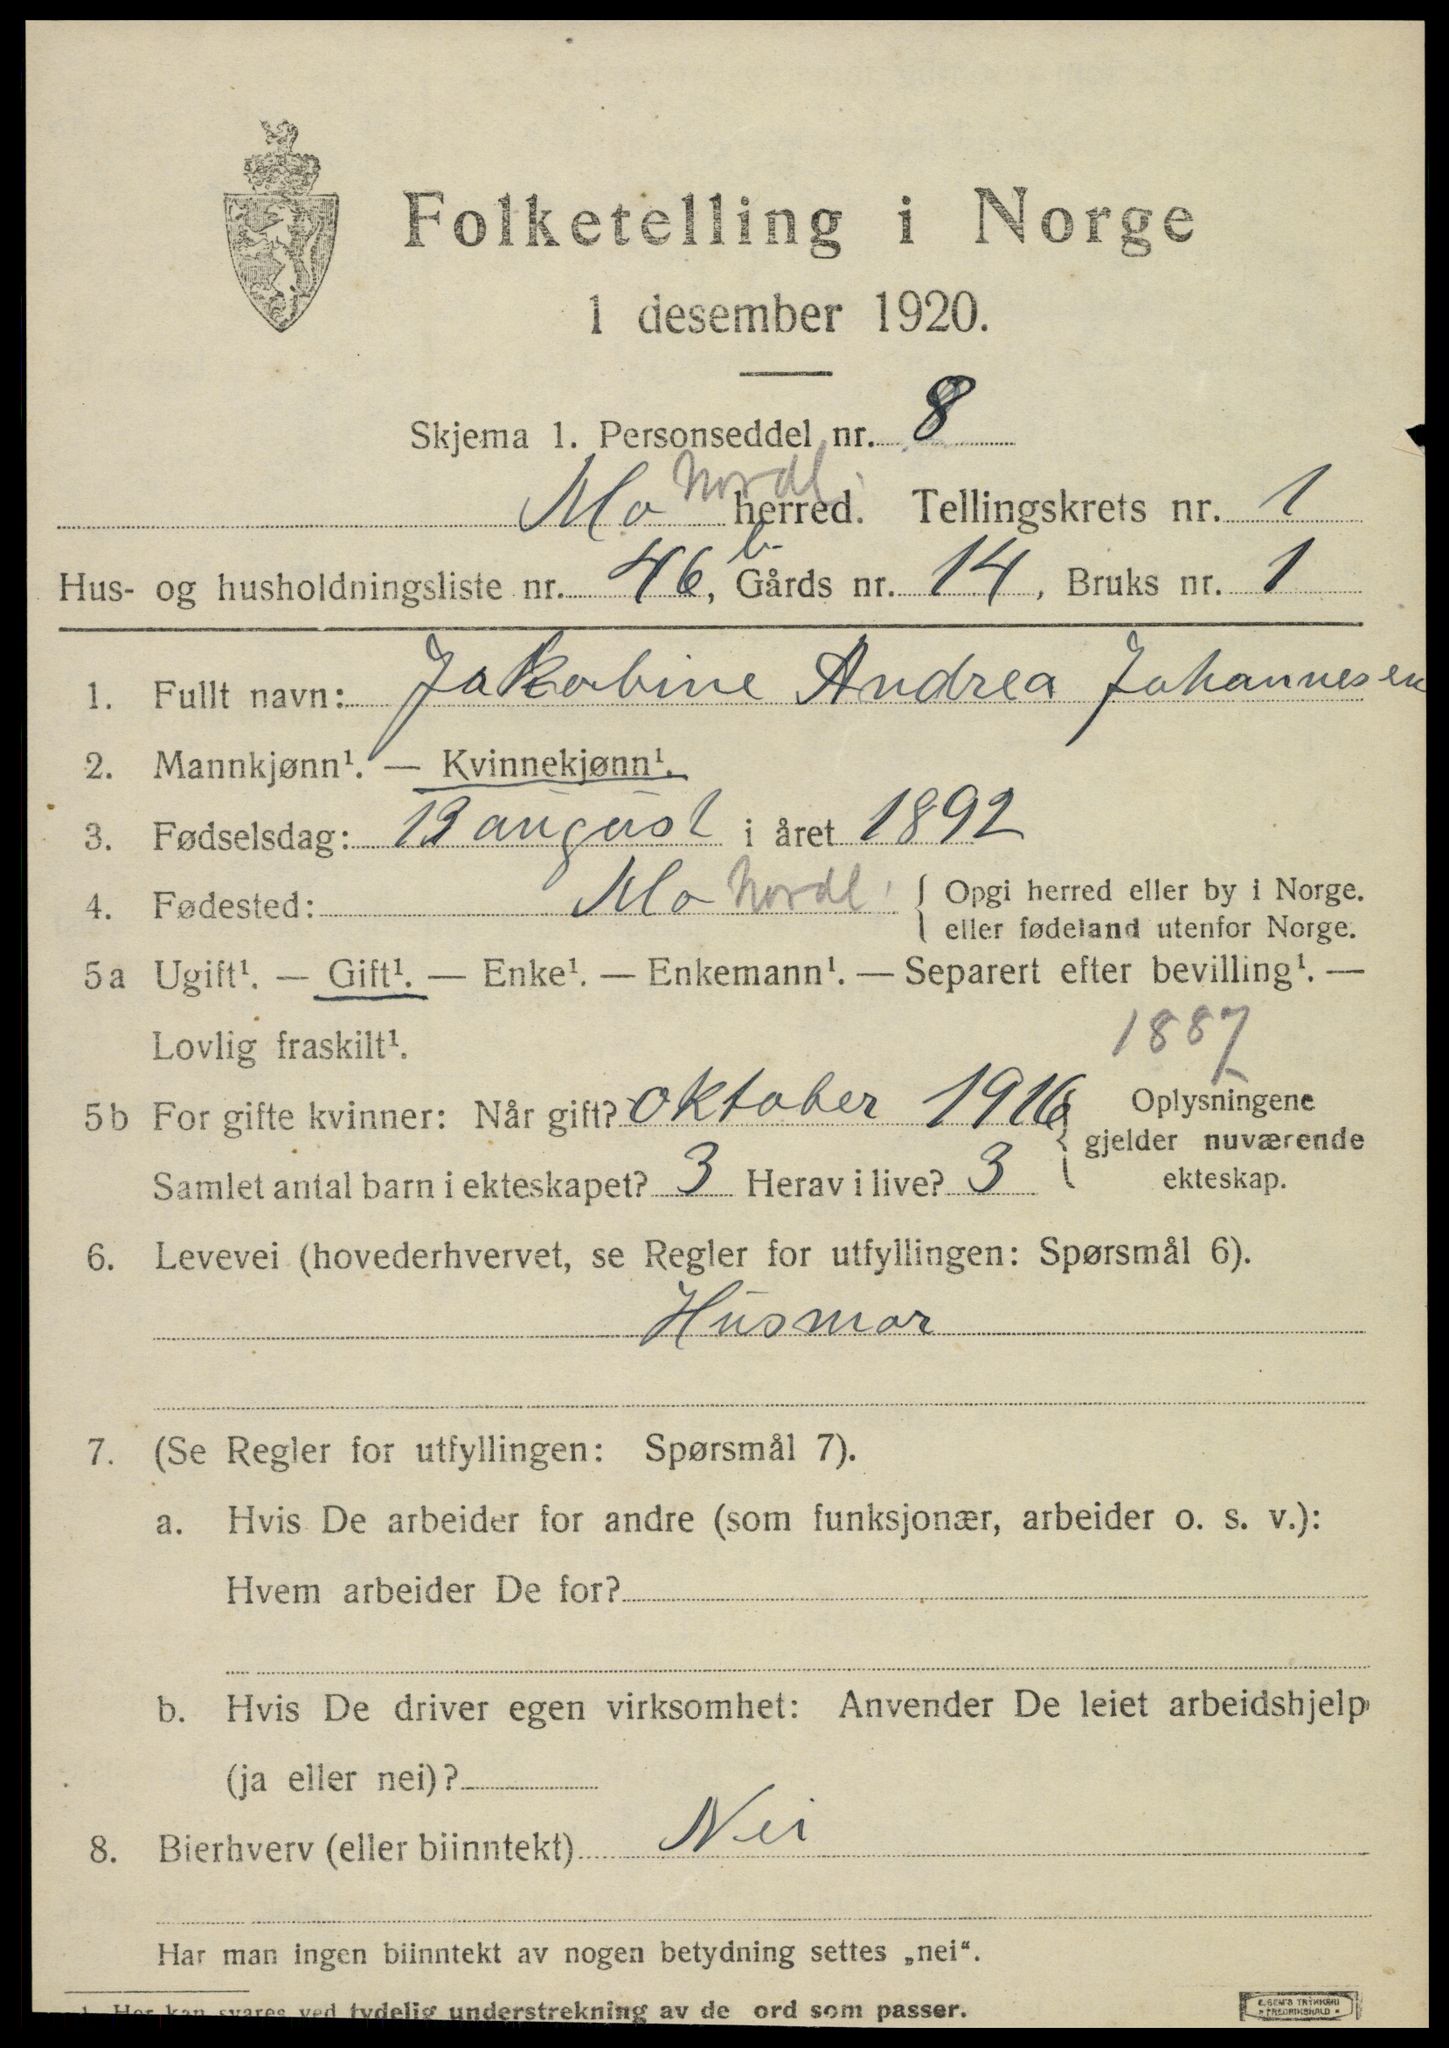 Folketelling i Norge
1 desember 1920.
Skjema 1. Personseddel nr. 8
Mo Nordl. herred. Tellingskrets nr. 1
Hus- og husholdningsliste nr. 46 b, Gårds nr. 14, Bruks nr. 1
1. Fullt navn: Jakobine Andrea Johannesen
2. Mannkjønn¹. — Kvinnekjønn¹.
3. Fødselsdag: 13 august i året 1892
4. Fødested: Mo Nordl. { Opgi herred eller by i Norge.
eller fødeland utenfor Norge.
5a Ugift¹. — Gift¹. — Enke¹. — Enkemann¹. — Separert efter bevilling¹. —
Lovlig fraskilt¹.
1887
5b For gifte kvinner: Når gift? oktober 1916 { Oplysningene
gjelder nuværende
Samlet antal barn i ekteskapet? 3 Herav i live? 3 ekteskap.
6. Levevei (hovederhvervet, se Regler for utfyllingen: Spørsmål 6).
Husmor
7. (Se Regler for utfyllingen: Spørsmål 7).
a. Hvis De arbeider for andre (som funksjonær, arbeider o. s. v.):
Hvem arbeider De for?
b. Hvis De driver egen virksomhet: Anvender De leiet arbeidshjelp
(ja eller nei)?
8. Bierhverv (eller biinntekt) Nei
Har man ingen biinntekt av nogen betydning settes „nei“.
¹ Her kan svares ved tydelig understrekning av de ord som passer.
E. SEM'S TRYKKERI
FREDRIKSHALD